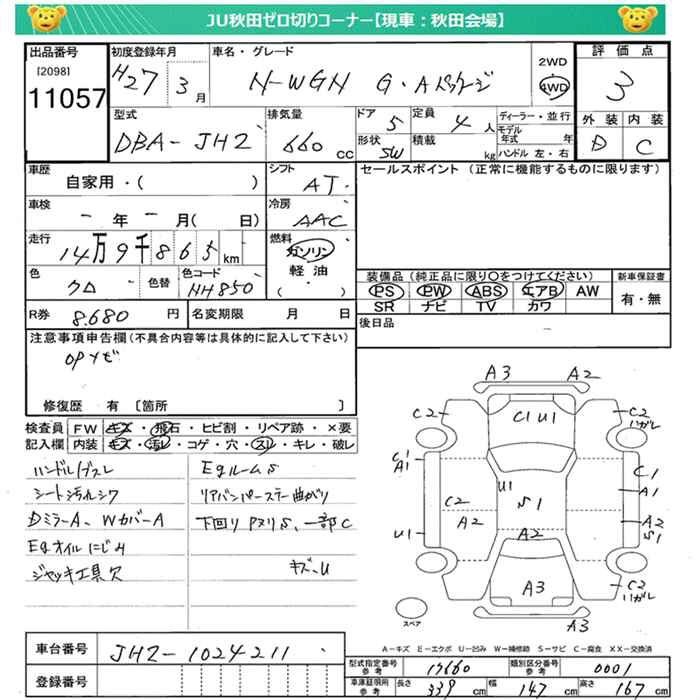 JU秋田ゼロ切りコーナー【現車：秋田会場】
出品番号 [2098] 11057
初度登録年月 H27 3月
車名・グレード N-WGN G・Aパッケージ
2WD 4WD
評価点 3
外装 D 内装 C
型式 DBA-JH2
排気量 660 cc
ドア 5 形状 SW
定員 4人 積載 kg
ディーラー・並行
モデル年式 年
ハンドル 左・右
車歴 自家用・( )
シフト AT
セールスポイント (正常に機能するものに限ります)
車検 - 年 - 月( 日)
冷房 AAC
走行 14万9千865km
燃料 ガソリン 軽油 ( )
色 クロ 色替
色コード NH850
装備品 (純正品に限り○をつけてください)
PS PW ABS エアB AW
SR ナビ TV カワ
新車保証書 有・無
R券 8,680円 名変期限 月 日
後日品
注意事項申告欄(不具合内容等は具体的に記入して下さい)
OPナビ
修復歴 有 [箇所 ]
検査員記入欄
FW キズ・飛石・ヒビ割・リペア跡・×要
内装 キズ・汚レ・コゲ・穴・スレ・キレ・破レ
ハンドルスレ
シート汚れシワ
DミラーA、WカバーA
Egオイルにじみ
ジャッキ工具欠
EgルームS
リアバンパーステー曲がり
下回りPヌリS、一部C
キズ・U
A3 A2
C2 C1 U1 C2
C1 A1 U1 C1 A1
C2 S1
A2 A2 S1
U1 A2
C2
A3
A3
スペア
A－キズ E－エクボ U－凹み W－補修跡 S－サビ C－腐食 XX－交換済
車台番号 JH2-1024211
登録番号
型式指定番号 参考 17660 類別区分番号 参考 0001
車庫証明用 参考 長さ 339cm 幅 147cm 高さ 167cm